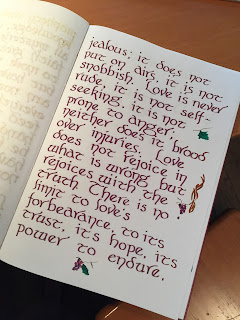 jealous; it does not
put on airs, it is not
snobbish. Love is never
rude, it is not self-
seeking, it is not
prone to anger;
neither does it brood
over injuries. Love
does not rejoice in
what is wrong but
rejoices with the
truth. There is no
limit to love's
forbearance, to its
trust, it's hope, its
power to endure.